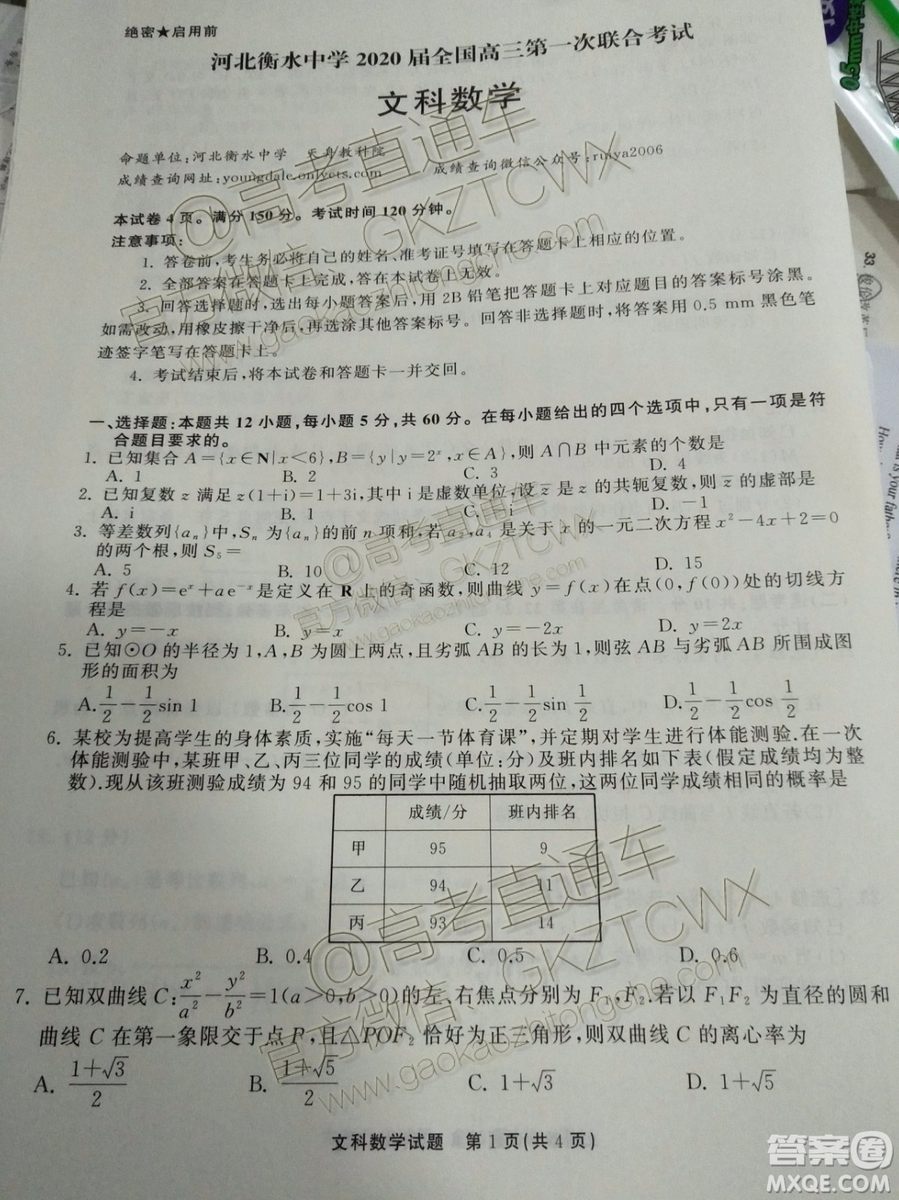 绝密★启用前
河北衡水中学 2020 届全国高三第一次联合考试
文科数学
命题单位:河北衡水中学 天舟教科院
成绩查询网址:youngdale.onlyets.com 成绩查询微信公众号:ruiya2006
本试卷 4 页。满分 150 分。考试时间 120 分钟。
注意事项:
1. 答卷前,考生务必将自己的姓名、准考证号填写在答题卡上相应的位置。
2. 全部答案在答题卡上完成,答在本试卷上无效。
3. 回答选择题时,选出每小题答案后,用 2B 铅笔把答题卡上对应题目的答案标号涂黑。
如需改动,用橡皮擦干净后,再选涂其他答案标号。回答非选择题时,将答案用 0.5 mm 黑色笔
迹签字笔写在答题卡上。
4. 考试结束后,将本试卷和答题卡一并交回。
一、选择题:本题共 12 小题,每小题 5 分,共 60 分。在每小题给出的四个选项中,只有一项是符
合题目要求的。
1. 已知集合 A={x∈N|x<6},B={y|y=2ˣ,x∈A},则 A∩B 中元素的个数是
A. 1 B. 2 C. 3 D. 4
2. 已知复数 z 满足 z(1+i)=1+3i,其中 i 是虚数单位,设 z̄ 是 z 的共轭复数,则 z̄ 的虚部是
A. i B. 1 C. −i D. −1
3. 等差数列{aₙ}中,Sₙ 为{aₙ}的前 n 项和,若 a₂,a₄ 是关于 x 的一元二次方程 x²−4x+2=0
的两个根,则 S₅=
A. 5 B. 10 C. 12 D. 15
4. 若 f(x)=eˣ+ae⁻ˣ是定义在 R 上的奇函数,则曲线 y=f(x)在点(0,f(0))处的切线方
程是
A. y=−x B. y=x C. y=−2x D. y=2x
5. 已知⊙O 的半径为 1,A,B 为圆上两点,且劣弧 AB 的长为 1,则弦 AB 与劣弧 AB 所围成图
形的面积为
A. 1/2−1/2 sin 1 B. 1/2−1/2 cos 1 C. 1/2−1/2 sin 1/2 D. 1/2−1/2 cos 1/2
6. 某校为提高学生的身体素质,实施“每天一节体育课”,并定期对学生进行体能测验.在一次
体能测验中,某班甲、乙、丙三位同学的成绩(单位:分)及班内排名如下表(假定成绩均为整
数).现从该班测验成绩为 94 和 95 的同学中随机抽取两位,这两位同学成绩相同的概率是
成绩/分 班内排名
甲 95 9
乙 94 11
丙 93 14
A. 0.2 B. 0.4 C. 0.5 D. 0.6
7. 已知双曲线 C:x²/a²−y²/b²=1(a>0,b>0)的左、右焦点分别为 F₁,F₂.若以 F₁F₂ 为直径的圆和
曲线 C 在第一象限交于点 P,且△POF₂ 恰好为正三角形,则双曲线 C 的离心率为
A. (1+√3)/2 B. (1+√5)/2 C. 1+√3 D. 1+√5
文科数学试题 第 1 页(共 4 页)
@高考直通车
官方微信:GKZTCWX
www.gaokaozhitongche.com
@高考直通车
官方微信:GKZTCWX
www.gaokaozhitongche.com
答案圈
MXQE.COM